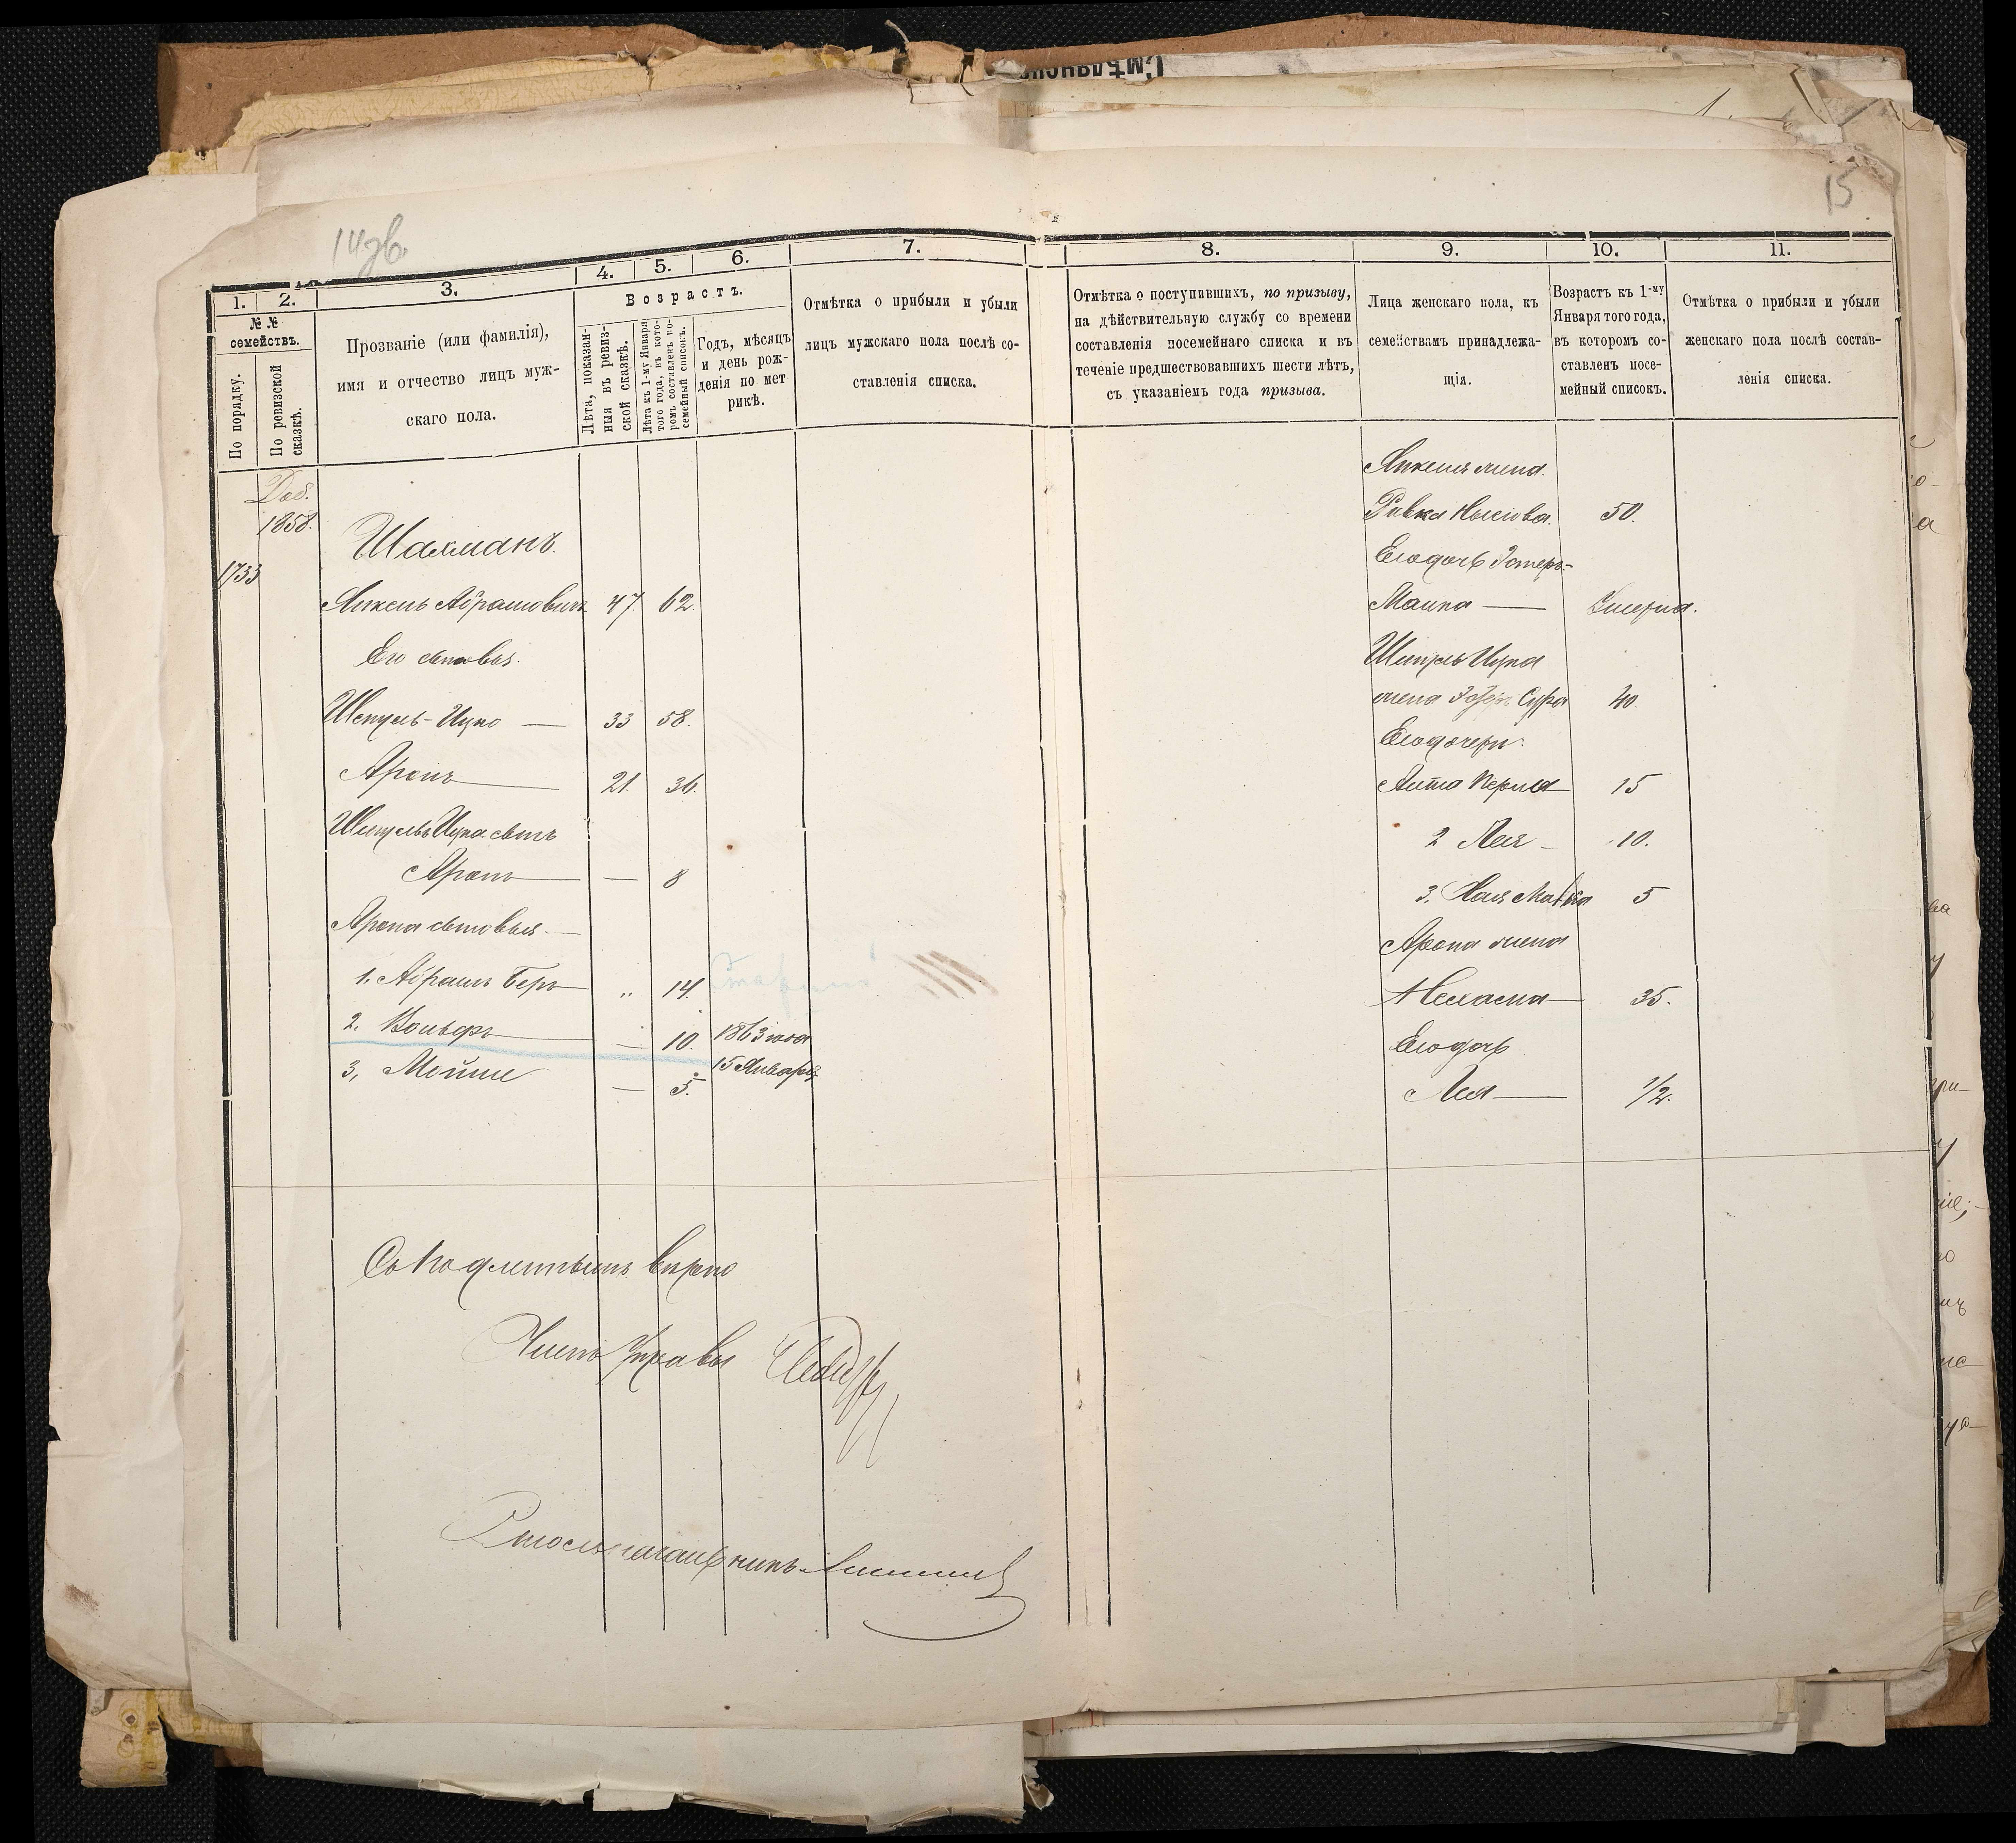 Смѣлянск
14 зв.
15
1.
2.
3.
4.
5.
6.
7.
8.
9.
10.
11.
№№ семействъ.
По порядку.
По ревизской сказкѣ.
Прозваніе (или фамилія),
имя и отчество лицъ муж-
скаго пола.
Возрастъ.
Лѣта, показан-
ныя въ ревиз-
ской сказкѣ.
Лѣта къ 1-му Января
того года, въ кото-
ромъ составленъ по-
семейный списокъ.
Годъ, мѣсяцъ
и день рож-
денія по мет
рикѣ.
Отмѣтка о прибыли и убыли
лицъ мужскаго пола послѣ со-
ставленія списка.
Отмѣтка о поступившихъ, по призыву,
на дѣйствительную службу со времени
составленія посемейнаго списка и въ
теченіе предшествовавшихъ шести лѣтъ,
съ указаніемъ года призыва.
Лица женскаго пола, къ
семействамъ принадлежа-
щія.
Возрастъ къ 1-му
Января того года,
въ которомъ со-
ставленъ посе-
мейный списокъ.
Отмѣтка о прибыли и убыли
женскаго пола послѣ состав-
ленія списка.
Доб.
1858.
1733
Шахманъ.
Янкель Абрамовичъ 47. 62.
Его сыновья.
Шмуль-Ицко — 33 58.
Аронъ — 21. 36.
Шмуль Ицка сынъ
Аронъ — — 8
Арона сыновья. —
1. Абрамъ Беръ — „ 14.
2. Вольфъ — — 10. 1863 года
15 Января
3, Мойше — 5.
Янкеля жена.
Ривка Нысова. 50.
Его дочь Эстеръ-
Малка — Умерла.
Шмуль Ицка
жена Сура 40.
Его дочери:
Перля 15
2 Лея — 10.
3. Хая 5
Арона жена
Нехама — 35.
Его дочь
Лея — 1/2.
Съ подлиннымъ вѣрно
Членъ Управы